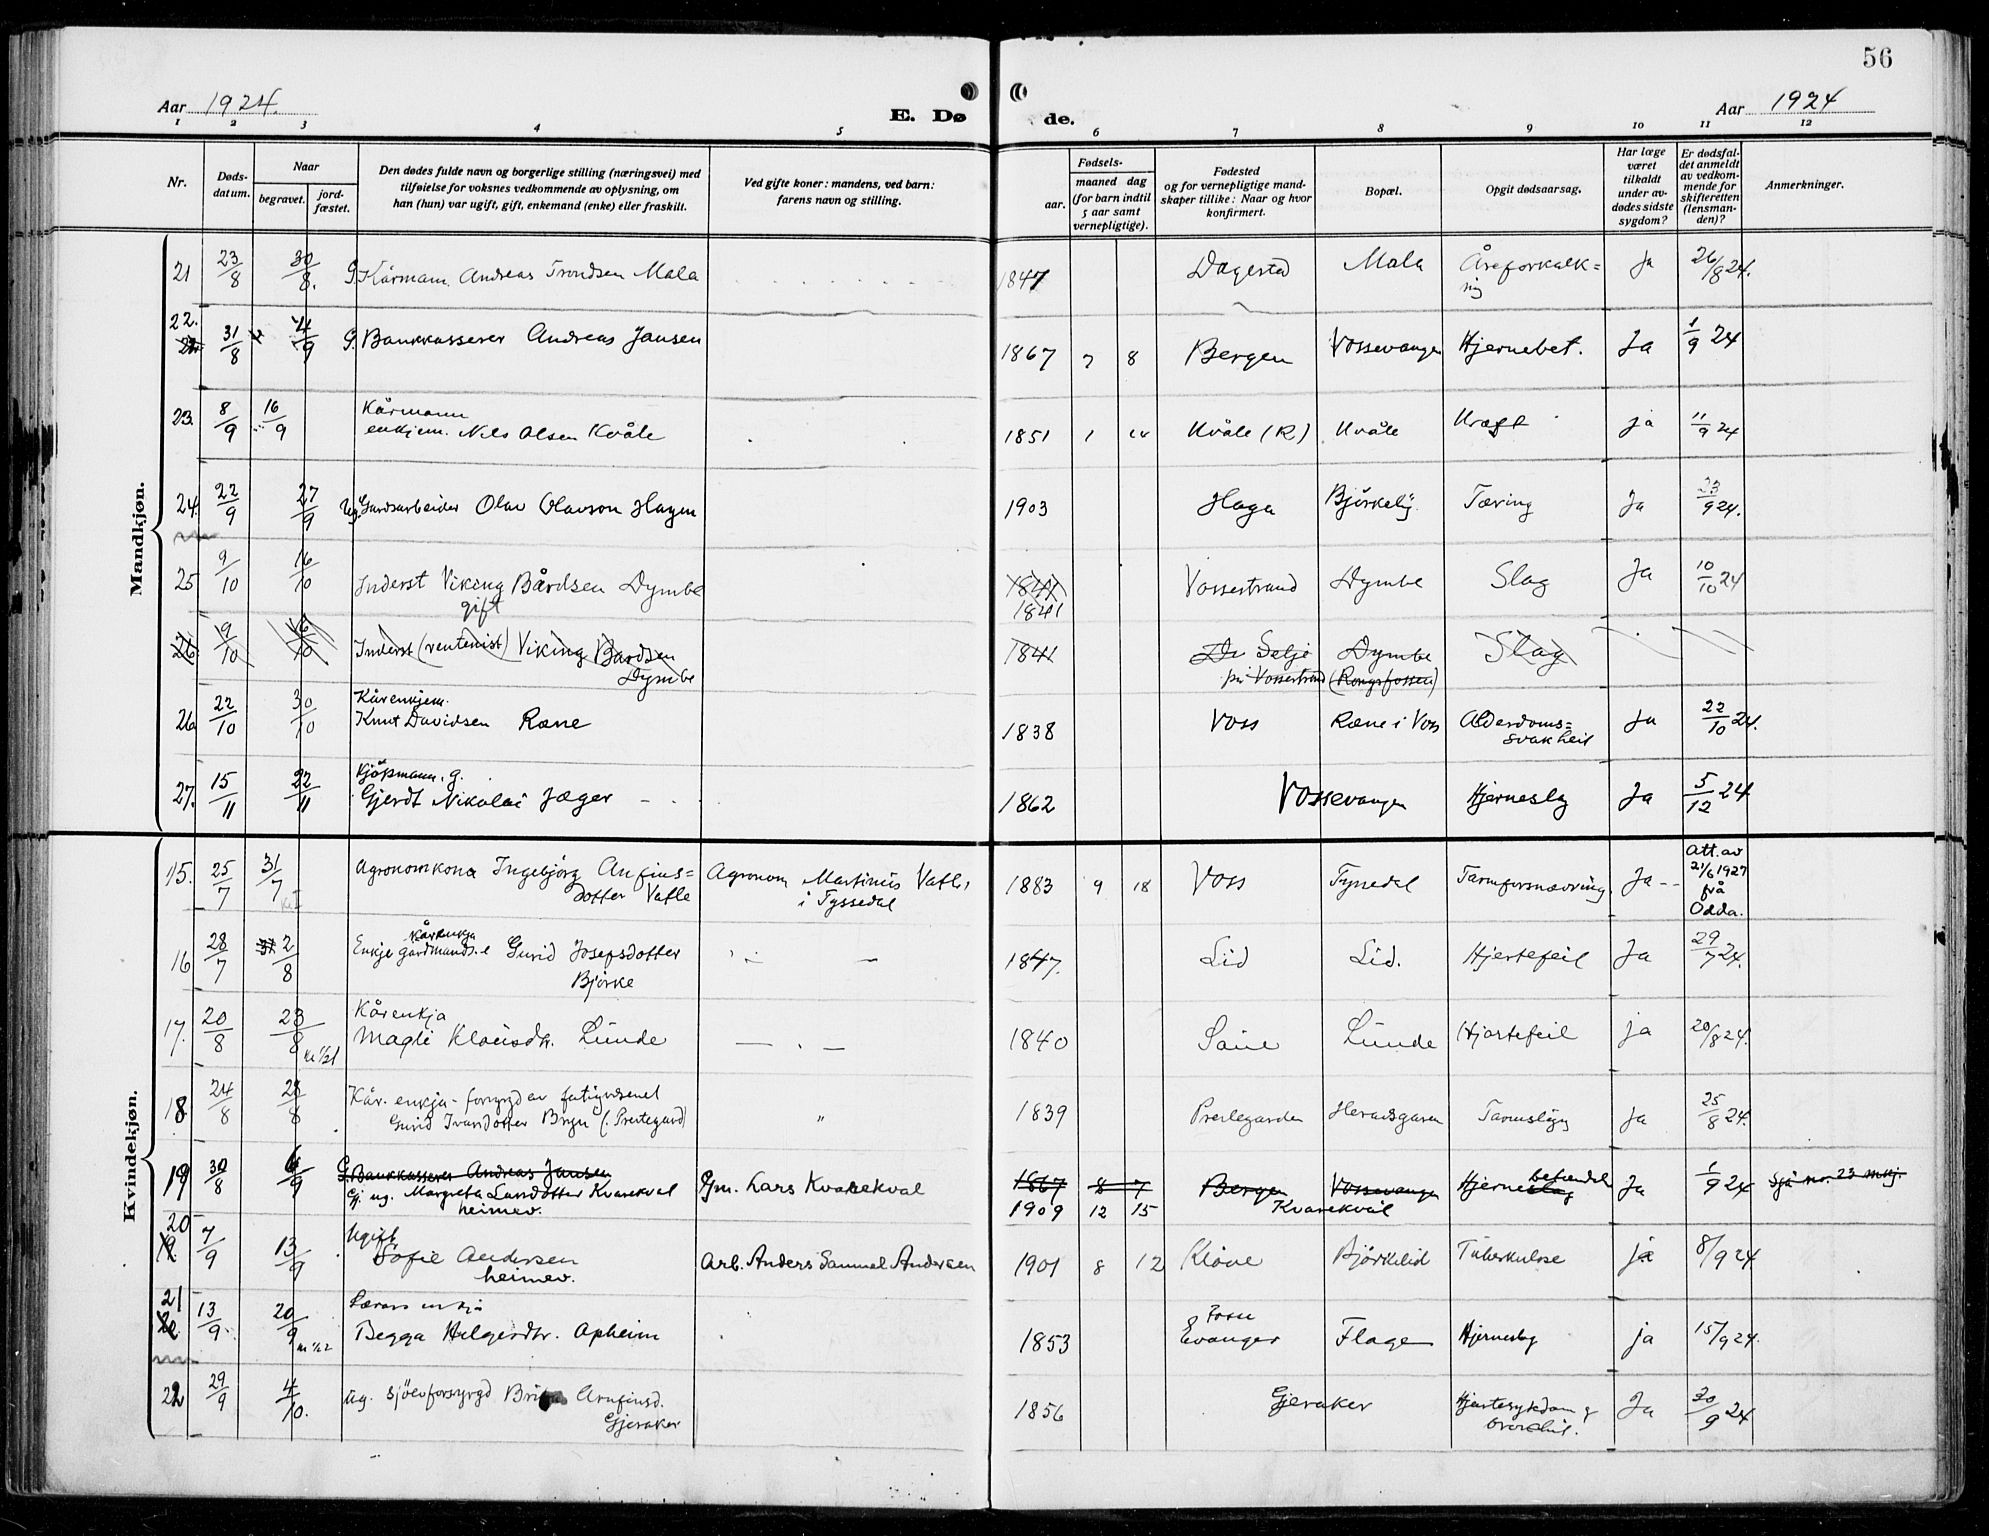 56
Aar 1924.
E. Dø de.
Aar 1924
1 2 3 4 5 6 7 8 9 10 11 12
Nr.
Døds-
datum.
Naar
begravet.
jord-
fæstet.
Den dødes fulde navn og borgerlige stilling (næringsvei) med
tilføielse for voksnes vedkommende av oplysning, om
han (hun) var ugift, gift, enkemand (enke) eller fraskilt.
Ved gifte koner: mandens, ved barn:
farens navn og stilling.
Fødsels-
aar.
maaned dag
(for barn indtil
5 aar samt
vernepligtige).
Fødested
og for vernepligtige mand-
skaper tillike: Naar og hvor
konfirmert.
Bopæl.
Opgit dødsaarsag.
Har læge
været
tilkaldt
under av-
dødes sidste
sygdom?
Er dødsfal-
det anmeldt
av vedkom-
mende for
skifteretten
(lensman-
den)?
Anmerkninger.
Mandkjøn.
21 23/8 30/8. G. Kårmann Andreas Trondsen Mala 1847 Dagestad Mala Åreforkalk= Ja 26/8 24.
ng
22. 31/8 4/9 G. Bankkasserer Andreas Jansen 1867 7 8 Bergen Vossevangen Hjernebet. Ja 1/9 24
23. 8/9 16/9 Kårmann
enkjem. Nils Olsen Kvåle 1851 1 Kvåle (R) Kvåle Kræft ja 11/9 24
24. 22/9 27/9 Ug. Gardsarbeider Olav Olavson Hagen 1903 Haga Bjørkelig Tæring Ja 23/9 24.
25 9/10 16/10 Inderst Viking Bårdsen Dymbe 1841 Vossestrand Dymbe Slag Ja 10/10 24
gift 1841
26 9/10 16/10 Inderst (rentenist) Viking Bardsen 1841 Selje Dymbe Slag
Dymbe på Vossestrand (Rongsfossen)
26 22/10 30/10 Kårenkjem.
Knut Davidsen Ræne 1838 Voss Ræne i Voss Alderdoms= Ja 22/10 24.
svakheit
27. 15/11 22/11 Kjöpmann, g.
Gjerdt Nikolai Jæger 1862 Vossevangen Hjerneslag Ja 5/12 24
Kvindekjøn.
15. 25/7 31/7 Agronomkona Ingebjörg Anfins= Agronom Martinus Vatle 1883 9 18 Voss Tyssedal Tarmforsnævring. Ja -- Att. av
dotter Vatle i Tyssedal 21/6 1927
frå
Odda.
16 28/7 2/8 Kårenkja
Enkje gardmands.e Gurid Josefsdotter 1847. Lid Lid. Hjertefeil Ja 29/7 24.
Bjørke
17. 20/8 23/8 Kårenkja
Magli Klausdtr. Lunde 1840 Saue Lunde Hjartefeil ja 20/8 24.
18 24/8 28/8 Kår. enkja - forsyrgd av fatigvesenet
Gurid Ivarsdotter Bryn (: Prestegard) " 1839 Prestegarden Heradsgaren Tarmslyng Ja 25/8 24.
19 30/8 6/9 G. Bankkasserer Andreas Jansen 1867 8 7 Bergen Vossevangen Hjerneslag betændelse Ja 1/9 24 Sjå nr. 23 mkj.
Gj. ug. Margreta Larsdotter Kvarekval Gm. Lars Kvarekval 1909 12 15 Kvarekval
heimev.
20 7/9 13/9 Ugift
Sofie Andersen Arb. Anders Samuel Andersen 1901 8 12 Kløve Bjørkelid Tuberkulose ja 8/9 24
heimev.
21 13/9. 20/9 Lærars enkja
Begga Helgesdtr. Opheim 1853 Evanger Flage Hjerneslag ja 15/9 24.
22 29/9 4/10. ug. sjölvforsyrgd Brita Arnfinsd. 1856 Gjeraker Hjartesykdom g Ja 30/9 24
Gjeraker